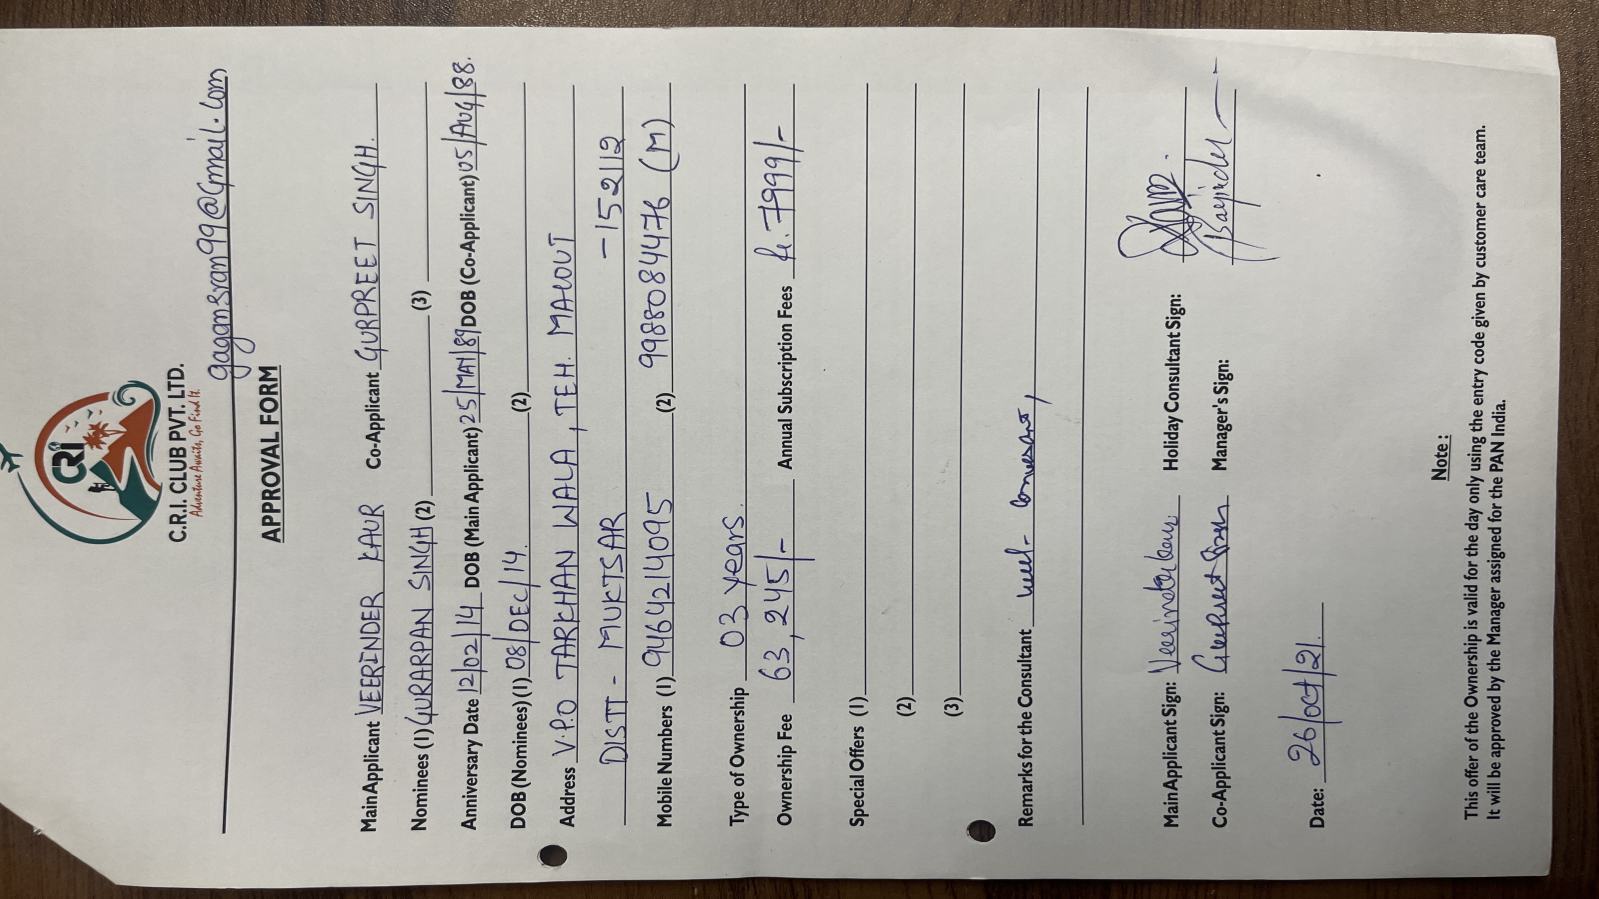 CRI
C.R.I. CLUB PVT. LTD.
Adventure Awaits, Go Find It.
gagan3ran99@gmail.com
APPROVAL FORM
Main Applicant VEERINDER KAUR Co-Applicant GURPREET SINGH.
Nominees (1) GURARPAN SINGH (2) (3)
Anniversary Date 12/02/14 DOB (Main Applicant) 25/MAY/89 DOB (Co-Applicant) 05/AUG/88.
DOB (Nominees) (1) 08/DEC/14. (2)
Address V.P.O TARKHAN WALA, TEH. MALOUT
DISTT - MUKTSAR - 152112
Mobile Numbers (1) 9464214095 (2) 9988084476 (M)
Type of Ownership 03 years.
Ownership Fee 63,245/- Annual Subscription Fees Rs. 7999/-
Special Offers (1)
(2)
(3)
Remarks for the Consultant well-
Main Applicant Sign: Veerinder Kaur Holiday Consultant Sign:
Co-Applicant Sign: Gurpreet Singh Manager's Sign:
Date: 26/oct/21.
Note :
This offer of the Ownership is valid for the day only using the entry code given by customer care team.
It will be approved by the Manager assigned for the PAN India.